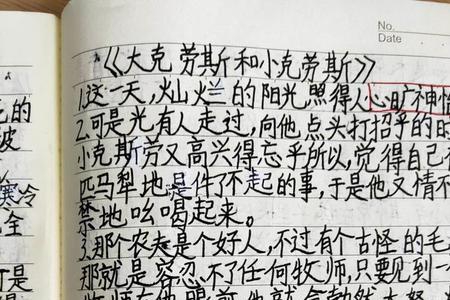 No.
Date
《大克劳斯和小克劳斯》
1.这一天,灿烂的阳光照得人心旷神怡
2.可是光有人走过,向他点头打招乎的时
小克斯劳又高兴得忘乎所以,觉得自己
匹马犁地是件了不起的事,于是他又情不
禁地吆喝起来。
3.那个农夫是个好人,不过有个古怪的毛
那就是容忍不了任何牧师,只要见到一
的
波
寒冷
全
可是